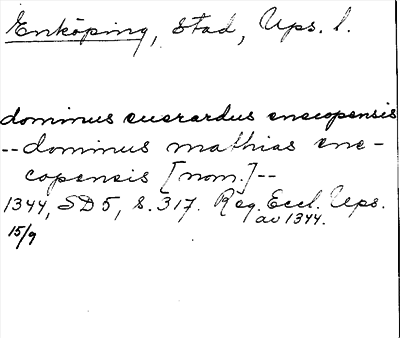 Enköping, Stad, Ups. l.
dominus euerardus enecopensis
--dominus mathias ene-
copensis [nom.]--
1344, SD 5, s. 317. Reg. Eccl. Ups.
av 1344.
15/9